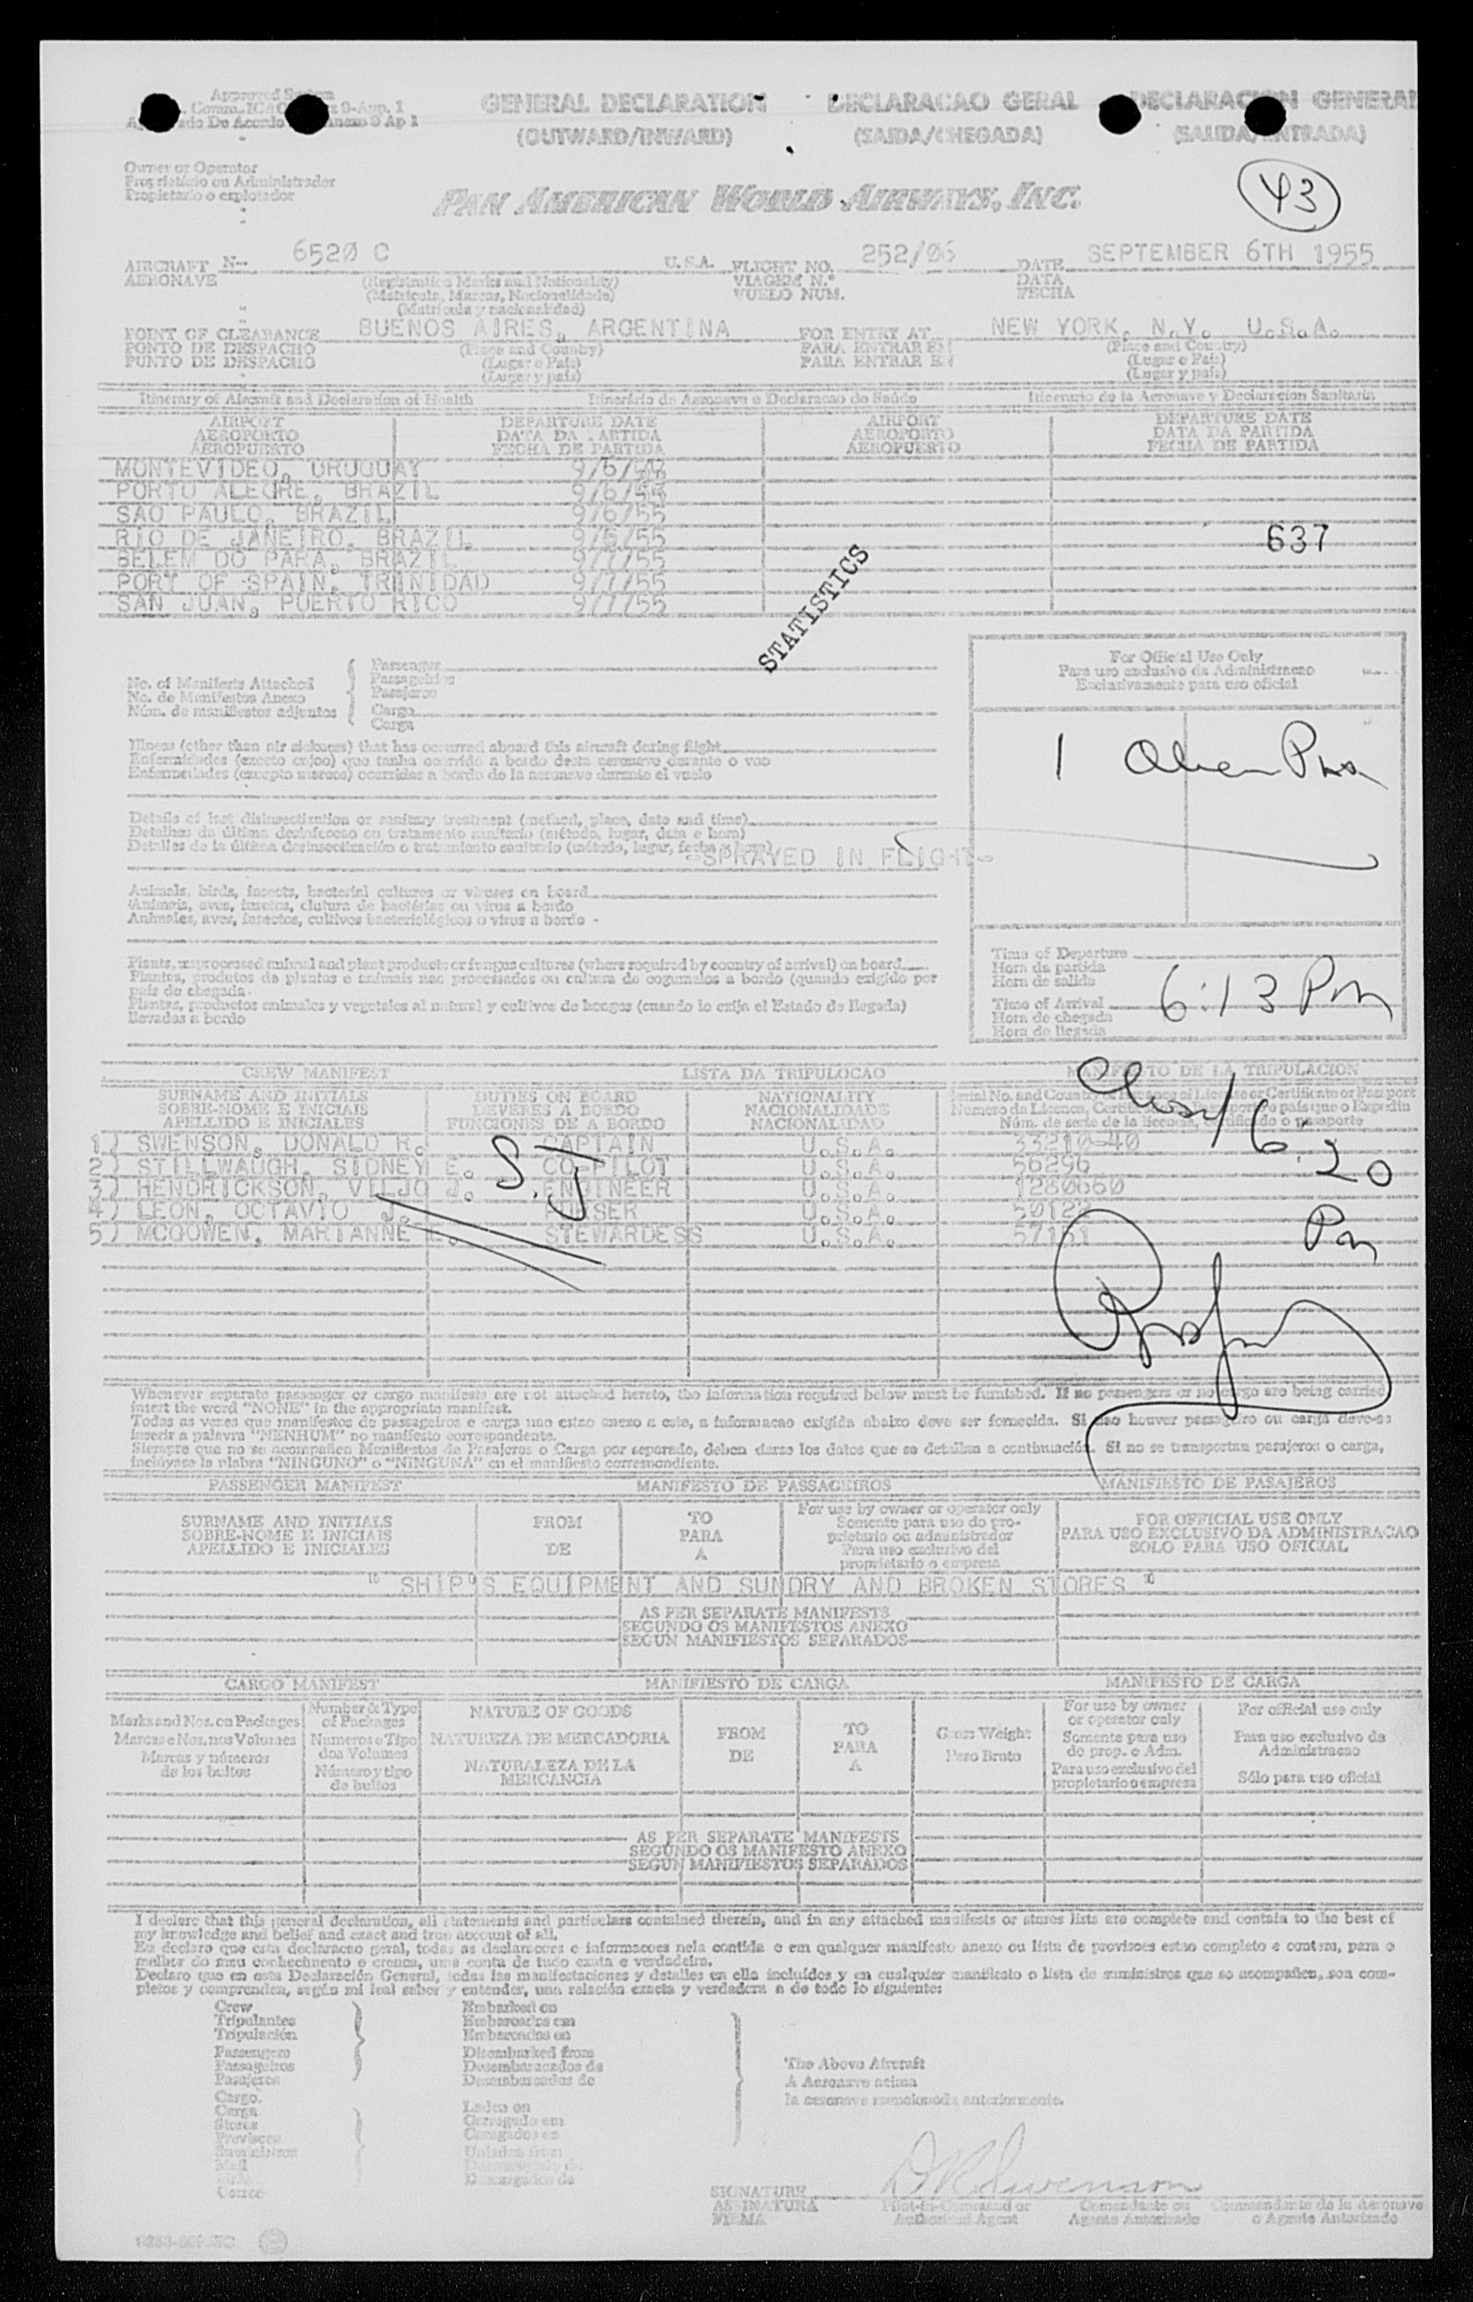 GENERAL DECLARATION DECLARACAO GERAL DECLARACION GENERAL
(OUTWARD/INWARD) (SAIDA/CHEGADA) (SALIDA/ENTRADA)
Owner or Operator
Proprietário ou Administrador
Propietario o explotador
PAN AMERICAN WORLD AIRWAYS, INC.
43
AIRCRAFT N- 6520 C U.S.A. FLIGHT NO. 252/06 DATE SEPTEMBER 6TH 1955
AERONAVE (Registration Marks and Nationality) VIAGEM N.º DATA
(Matricula, Marcas, Nacionalidade) VUELO NUM. FECHA
(Matricula y nacionalidad)
POINT OF CLEARANCE BUENOS AIRES, ARGENTINA FOR ENTRY AT NEW YORK, N.Y. U.S.A.
PONTO DE DESPACHO (Place and Country) PARA ENTRAR EM (Place and Country)
PUNTO DE DESPACHO (Lugar e Pais) PARA ENTRAR EN (Lugar e Pais)
(Lugar y país) (Lugar y país)
Itinerary of Aircraft and Declaration of Health Itinerário da Aeronave e Declaracao de Saúde Itinerario de la Aeronave y Declaracion Sanitaria
AIRPORT DEPARTURE DATE AIRPORT DEPARTURE DATE
AEROPORTO DATA DA PARTIDA AEROPORTO DATA DA PARTIDA
AEROPUERTO FECHA DE PARTIDA AEROPUERTO FECHA DE PARTIDA
MONTEVIDEO, URUGUAY 9/6/55
PORTO ALEGRE, BRAZIL 9/6/55
SAO PAULO, BRAZIL 9/6/55
RIO DE JANEIRO, BRAZIL 9/6/55 637
BELEM DO PARA, BRAZIL 9/7/55
PORT OF SPAIN, TRINIDAD 9/7/55
SAN JUAN, PUERTO RICO 9/7/55
STATISTICS
Passenger
No. of Manifests Attached Passageiros
No. de Manifestos Anexo Pasajeros
Núm. de manifiestos adjuntos Cargo
Carga
For Official Use Only
Para uso exclusivo da Administracao
Exclusivamente para uso oficial
Illness (other than air sickness) that has occurred aboard this aircraft during flight
Enfermidades (exceto enjoo) que tenha ocorrido a bordo desta aeronave durante o voo
Enfermedades (excepto mareos) ocurridas a bordo de la aeronave durante el vuelo
1
Details of last disinsectization or sanitary treatment (method, place, date and time)
Detalhes da última desinfeccao ou tratamento sanitario (método, lugar, data e hora)
Detalles de la última desinsectización o tratamiento sanitario (método, lugar, fecha y hora)
-SPRAYED IN FLIGHT-
Animals, birds, insects, bacterial cultures or viruses on board
Animais, aves, insetos, clutura de bactérias ou virus a bordo
Animales, aves, insectos, cultivos bacteriológicos o virus a bordo -
Plants, unprocessed animal and plant products or fungus cultures (where required by country of arrival) on board
Plantas, produtos de plantas e animais nao processados ou cultura de cogumelos a bordo (quando exigido por
pais de chegada-
Plantas, productos animales y vegetales al natural y cultivos de hongos (cuando lo exija el Estado de llegada)
llevadas a bordo
Time of Departure
Hora da partida
Hora de salida
Time of Arrival 6:13 Pm
Hora de chegada
Hora de llegada
CREW MANIFEST LISTA DA TRIPULOCAO MANIFIESTO DE LA TRIPULACION
SURNAME AND INITIALS DUTIES ON BOARD NATIONALITY
SOBRE-NOME E INICIAIS DEVERES A BORDO NACIONALIDADE
APELLIDO E INICIALES FUNCIONES DE A BORDO NACIONALIDAD
1) SWENSON, DONALD R. CAPTAIN U.S.A. 33210-40
2) STILLWAUGH, SIDNEY E. CO PILOT U.S.A. 56296
3) HENDRICKSON, VILJO J. ENGINEER U.S.A. 1280660
4) LEON, OCTAVIO J. PURSER U.S.A.
5) MCGOWEN, MARIANNE STEWARDESS U.S.A. 57151
S.J
6:20
Pm
Whenever separate passenger or cargo manifests are not attached hereto, the information required below must be furnished. If no passengers or no cargo are being carried
insert the word "NONE" in the appropriate manifest.
Todas as vezes que manifestos de passageiros e carga nao estao anexo a este, a informacao exigida abaixo deve ser fornecida. Si nao houver passageiro ou carga deve-se
inserir a palavra "NENHUM" no manifesto correspondente.
Siempre que no se acompañen Manifiestos de Pasajeros o Carga por separado, deben darse los datos que se detallan a continuación. Si no se transportan pasajeros o carga,
inclúyase la plabra "NINGUNO" o "NINGUNA" en el manifiesto correspondiente.
PASSENGER MANIFEST MANIFESTO DE PASSAGEIROS MANIFIESTO DE PASAJEROS
SURNAME AND INITIALS FROM TO For use by owner or operator only FOR OFFICIAL USE ONLY
SOBRE-NOME E INICIAIS DE PARA Somente para uso do pro- PARA USO EXCLUSIVO DA ADMINISTRACAO
APELLIDO E INICIALES A prietario ou administrador SOLO PARA USO OFICIAL
Para uso exclusivo del
propietario o empresa
" SHIP'S EQUIPMENT AND SUNDRY AND BROKEN STORES "
AS PER SEPARATE MANIFESTS
SEGUNDO OS MANIFESTOS ANEXO
SEGUN MANIFIESTOS SEPARADOS
CARGO MANIFEST MANIFIESTO DE CARGA MANIFESTO DE CARGA
Marks and Nos. on Packages Number & Type of Packages NATURE OF GOODS FROM TO Gross Weight For use by owner or operator only For official use only
Marcas e Nos. nos Volumes Numeros e Tipo dos Volumes NATUREZA DE MERCADORIA DE PARA Peso Bruto Somente para uso do prop. e Adm. Para uso exclusivo da Administracao
Marcas y números de los bultos Número y tipo de bultos NATURALEZA DE LA MERCANCIA A Para uso exclusivo del propietario o empresa Sólo para uso oficial
AS PER SEPARATE MANIFESTS
SEGUNDO OS MANIFESTO ANEXO
SEGUN MANIFIESTOS SEPARADOS
I declare that this general declaration, all statements and particulars contained therein, and in any attached manifests or stores lists are complete and contain to the best of
my knowledge and belief and exact and true account of all.
Eu declaro que esta declaracao geral, todas as declaracoes e informacoes nela contida e em qualquer manifesto anexo ou lista de provisoes estao completo e contem, para o
melhor do meu conhecimento e crenca, uma conta de tudo exata e verdadeira.
Declaro que en esta Declaración General, todas las manifestaciones y detalles en ella incluidos y en cualquier manifiesto o lista de suministros que se acompañen, son com-
pletos y comprenden, según mi leal saber y entender, una relación exacta y verdadera a de todo lo siguiente:
Crew Embarked on
Tripulantes Embarcados em
Tripulación Embarcados en
Passengers Disembarked from
Passageiros Desembarcados de
Pasajeros Desembarcados de
Cargo.
Carga Laden on
Stores Carregado em
Cargados en
The Above Aircraft
A Aeronave acima
la aeronave mencionada anteriormente.
SIGNATURE D R Swenson
ASSINATURA Pilot-in-Command or Comandante ou Commandante de la Aeronave
FIRMA Authorized Agent Agente Autorizado o Agente Autorizado